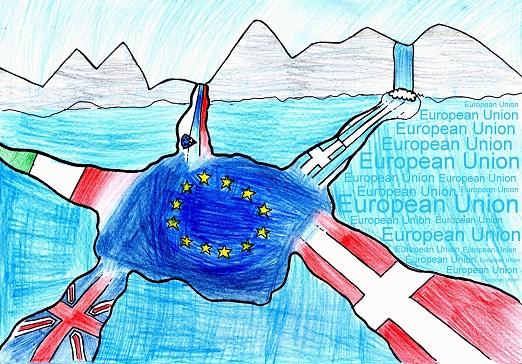 European Union
European Union
European Union
European Union
European Union
European Union European Union
European Union European Union
European Union
European Union European Union
European Union
European Union European Union
European Union European Union
European Union
European Union